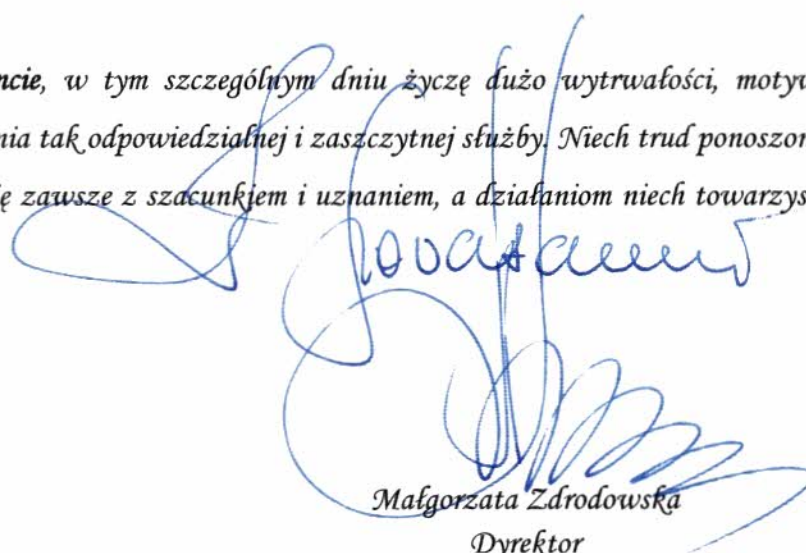 ncie, w tym szczególnym dniu życzę dużo wytrwałości, motyw
nia tak odpowiedzialnej i zaszczytnej służby. Niech trud ponoszon
ę zawsze z szacunkiem i uznaniem, a działaniom niech towarzys
Z poważaniem
Małgorzata Zdrodowska
Dyrektor